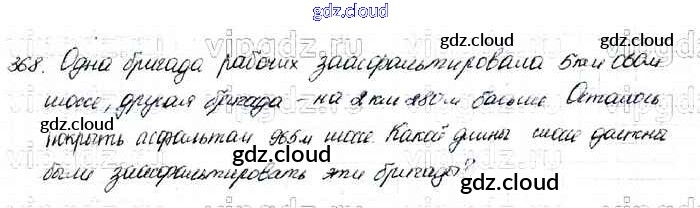 gdz.cloud
368. Одна бригада рабочих заасфальтировала 5 км 050 м
шоссе, другая бригада - на 2 км 280 м больше. Осталось
покрыть асфальтом 965 м шоссе. Какой длины шоссе должны
были заасфальтировать эти бригады?
gdz.cloud
gdz.cloud
gdz.cloud
gdz.cloud
gdz.cloud
gdz.cloud